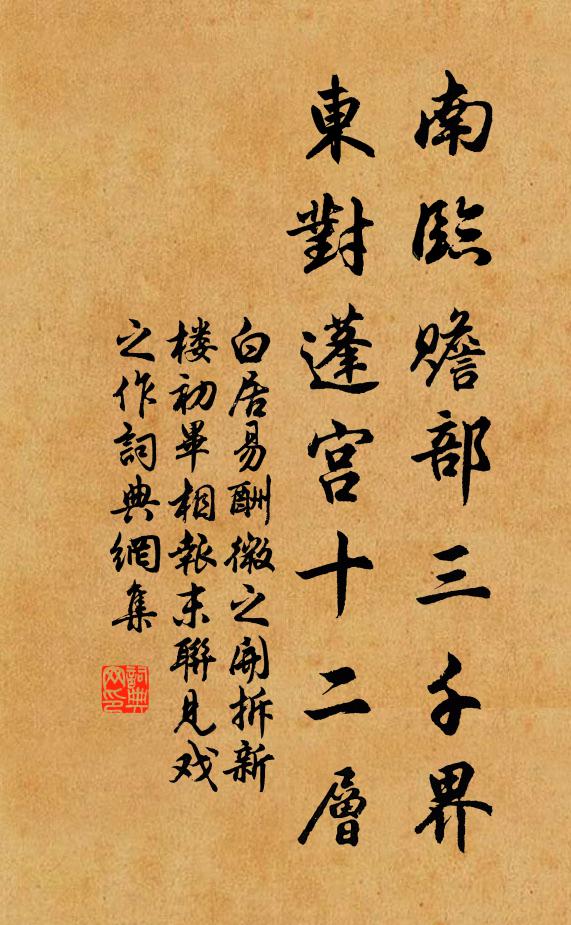 南臨贍部三千界
東對蓬宮十二層
白居易酬微之開拆新
楼初畢相報末聯見戏
之作詞典網集
詞典
网印